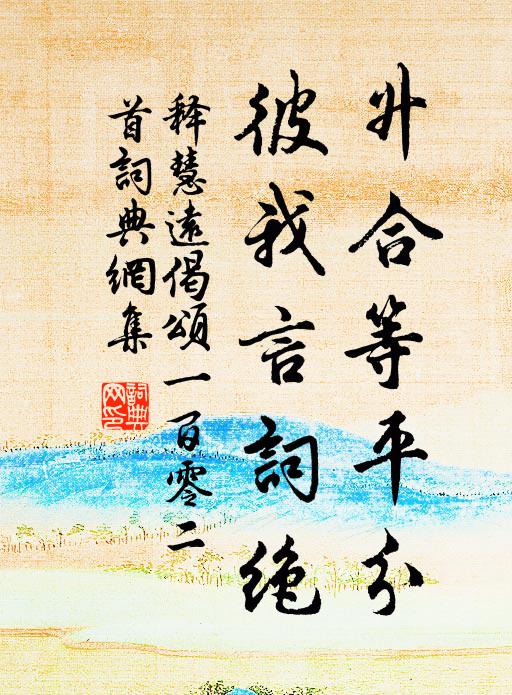 升合等平分
彼我言詞絶
释慧遠偈頌一百零二
首詞典網集
詞典
网印